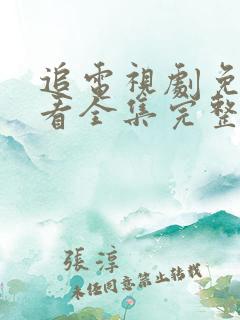 追電視劇免
看全集完整
張淳
未经同意禁止转载